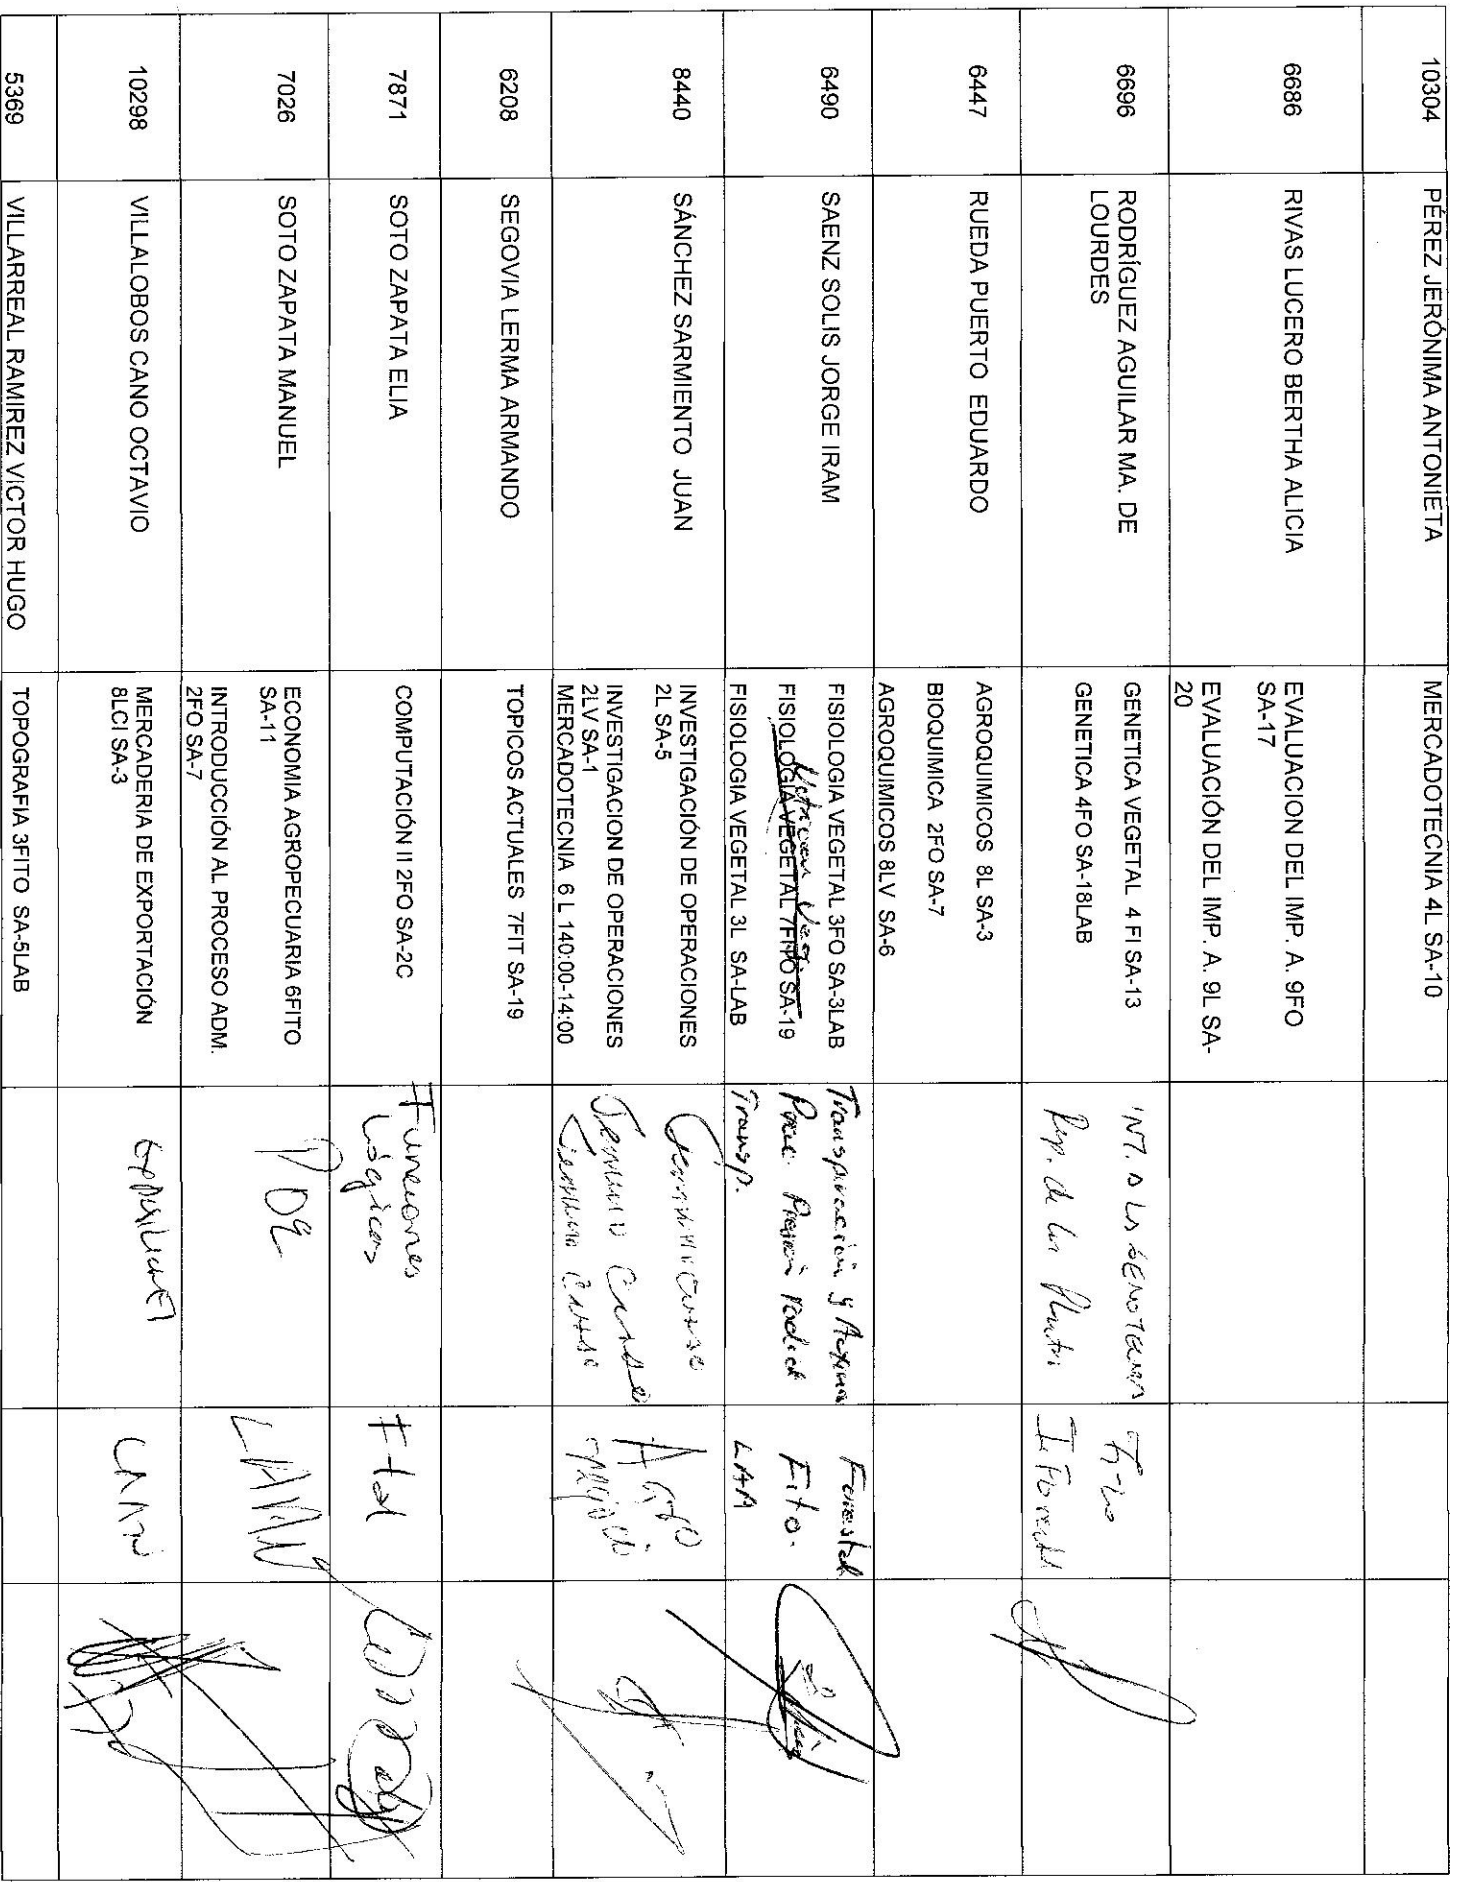 10304 PÉREZ JERÓNIMA ANTONIETA MERCADOTECNIA 4L SA-10
6686 RIVAS LUCERO BERTHA ALICIA EVALUACION DEL IMP. A. 9FO
SA-17
EVALUACIÓN DEL IMP. A. 9L SA-
20
6696 RODRÍGUEZ AGUILAR MA. DE
LOURDES
GENETICA VEGETAL 4 FI SA-13
GENETICA 4FO SA-18LAB
INT. A LA
Rep. de las Plantas
6447 RUEDA PUERTO EDUARDO
AGROQUIMICOS 8L SA-3
BIOQUIMICA 2FO SA-7
AGROQUIMICOS 8LV SA-6
6490 SAENZ SOLIS JORGE IRAM
FISIOLOGIA VEGETAL 3FO SA-3LAB
FISIOLOGIA VEGETAL 7FITO SA-19
FISIOLOGIA VEGETAL 3L SA-LAB
Transpiración y Forestal
Presión Fito.
Transp. LAM
8440 SÁNCHEZ SARMIENTO JUAN
INVESTIGACIÓN DE OPERACIONES
2L SA-5
INVESTIGACION DE OPERACIONES
2LV SA-1
MERCADOTECNIA 6 L 140:00-14:00
6208 SEGOVIA LERMA ARMANDO TOPICOS ACTUALES 7FIT SA-19
7871 SOTO ZAPATA ELIA COMPUTACIÓN II 2FO SA-2C Funciones
Lógicas
7026 SOTO ZAPATA MANUEL
ECONOMIA AGROPECUARIA 6FITO
SA-11
INTRODUCCIÓN AL PROCESO ADM.
2FO SA-7
10298 VILLALOBOS CANO OCTAVIO MERCADERIA DE EXPORTACIÓN
8LCI SA-3
5369 VILLARREAL RAMIREZ VICTOR HUGO TOPOGRAFIA 3FITO SA-5LAB